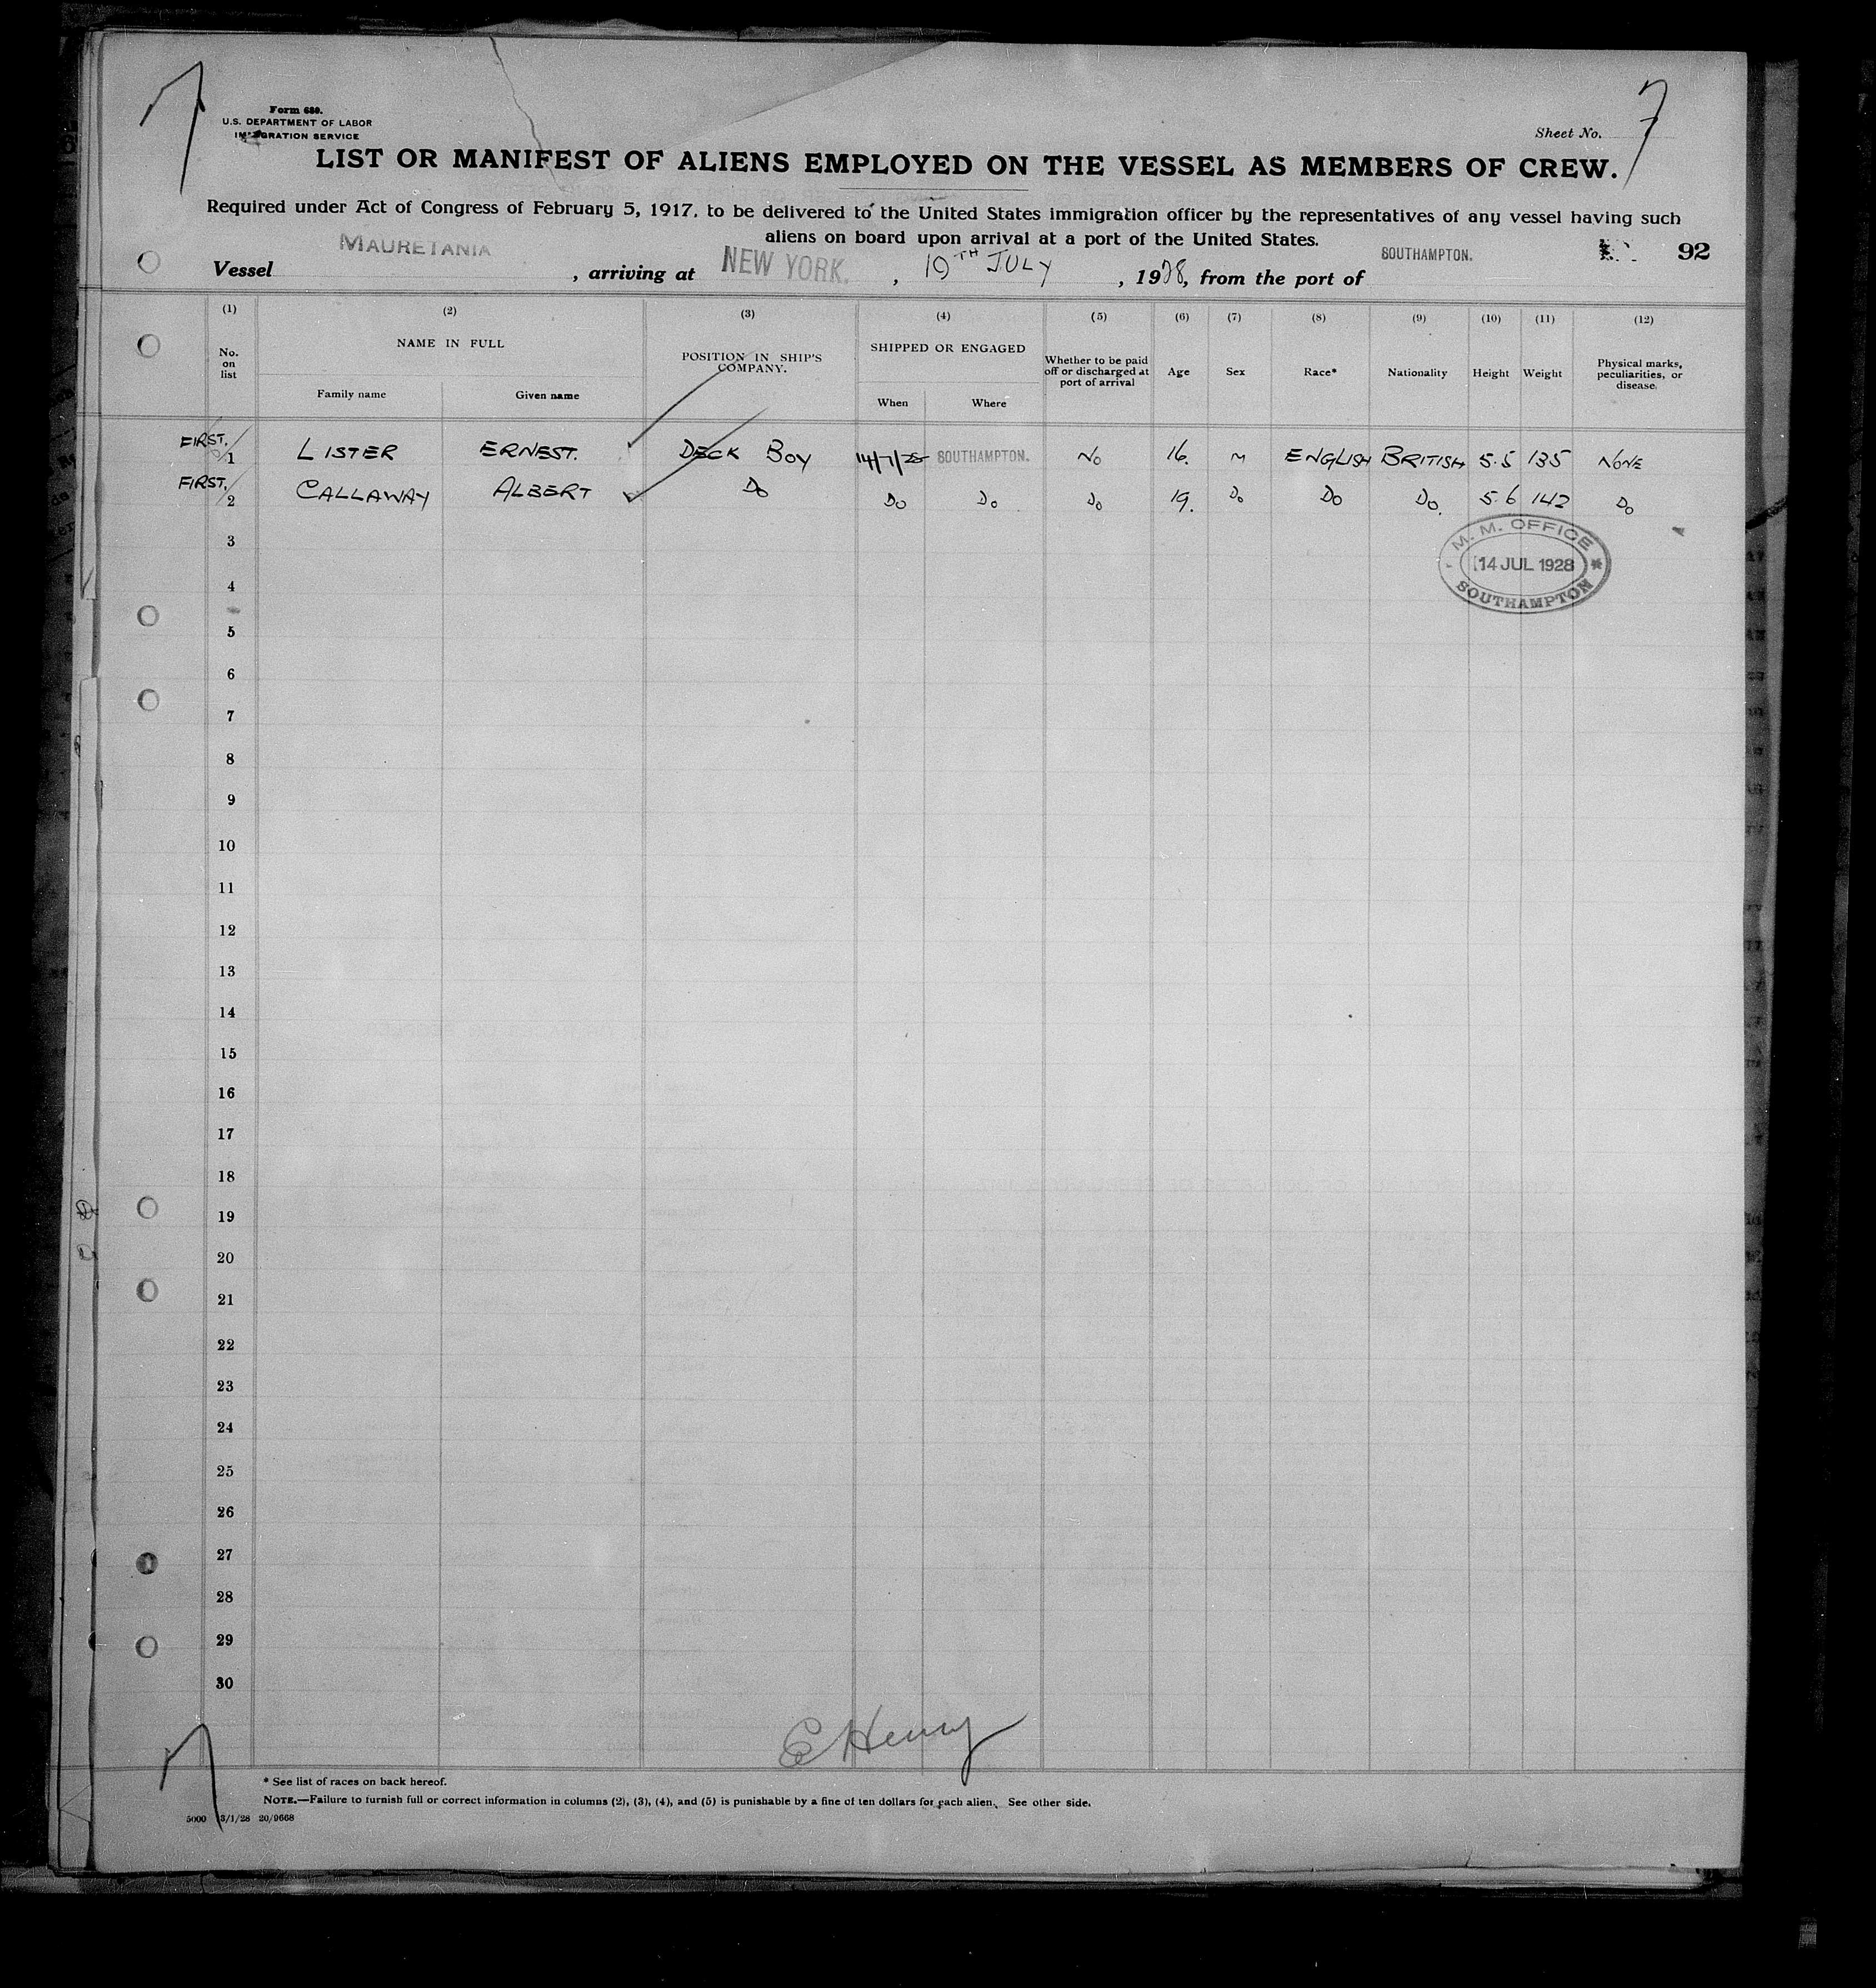 7
7
Form 689.
U.S. DEPARTMENT OF LABOR
IMMIGRATION SERVICE
Sheet No. 7
LIST OR MANIFEST OF ALIENS EMPLOYED ON THE VESSEL AS MEMBERS OF CREW.
Required under Act of Congress of February 5, 1917, to be delivered to the United States immigration officer by the representatives of any vessel having such
aliens on board upon arrival at a port of the United States.
92
Vessel MAURETANIA, arriving at NEW YORK., 19TH JULY, 1928, from the port of SOUTHAMPTON.
(1) (2) (3) (4) (5) (6) (7) (8) (9) (10) (11) (12)
No. on list NAME IN FULL POSITION IN SHIP'S COMPANY. SHIPPED OR ENGAGED Whether to be paid off or discharged at port of arrival Age Sex Race* Nationality Height Weight Physical marks, peculiarities, or disease.
Family name Given name When Where
FIRST. 1 LISTER ERNEST. DECK BOY 14/7/28 SOUTHAMPTON. NO 16. M ENGLISH BRITISH 5.5 135 NONE
FIRST. 2 CALLAWAY ALBERT DO DO DO DO 19. DO DO DO. 5.6 142 DO
M. M. OFFICE
14 JUL 1928
SOUTHAMPTON
3
4
5
6
7
8
9
10
11
12
13
14
15
16
17
18
19
20
21
22
23
24
25
26
27
28
29
30
E Henry
* See list of races on back hereof.
NOTE.—Failure to furnish full or correct information in columns (2), (3), (4), and (5) is punishable by a fine of ten dollars for each alien. See other side.
5000 3/1/28 20/9668